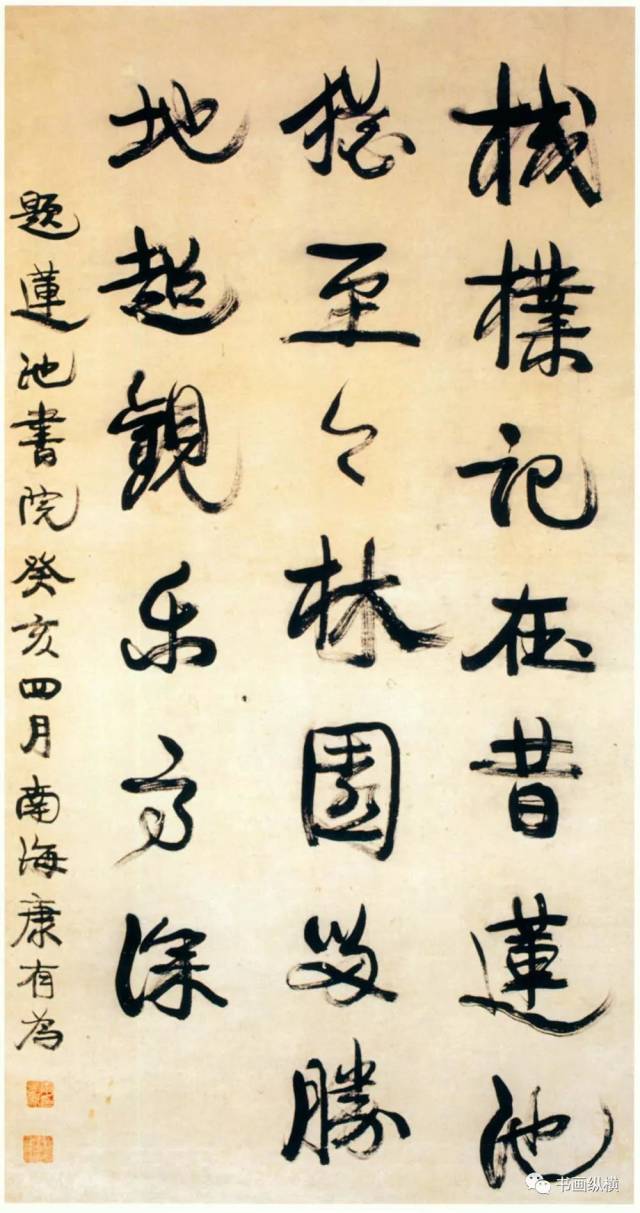 棫樸記在昔蓮池
猶至今林園留勝
地超觀樂高深
題蓮池書院癸亥四月南海康有為
书画纵横